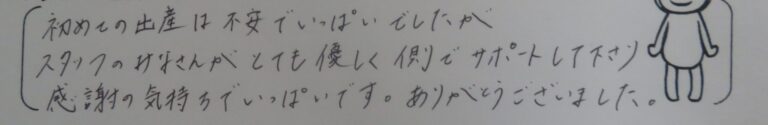 初めての出産は不安でいっぱいでしたが
スタッフのみなさんがとても優しく側でサポートして下さり
感謝の気持ちでいっぱいです。ありがとうございました。